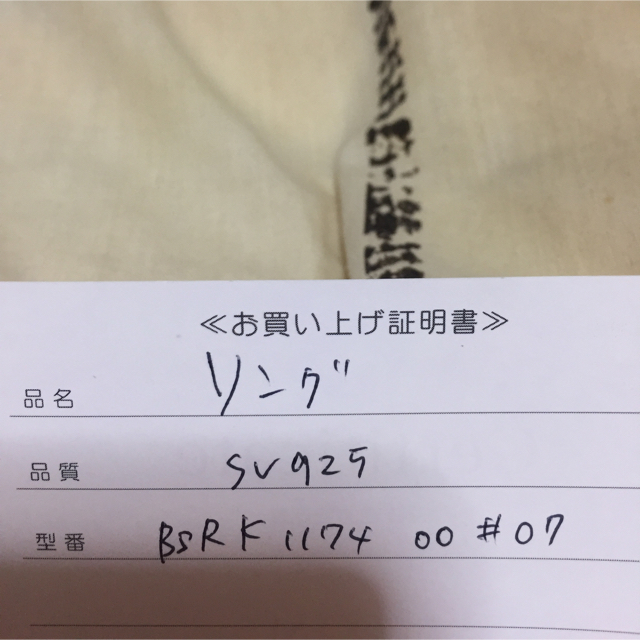 ≪お買い上げ証明書≫
品名 リング
品質 SV925
型番 BSRK1174 00 #07